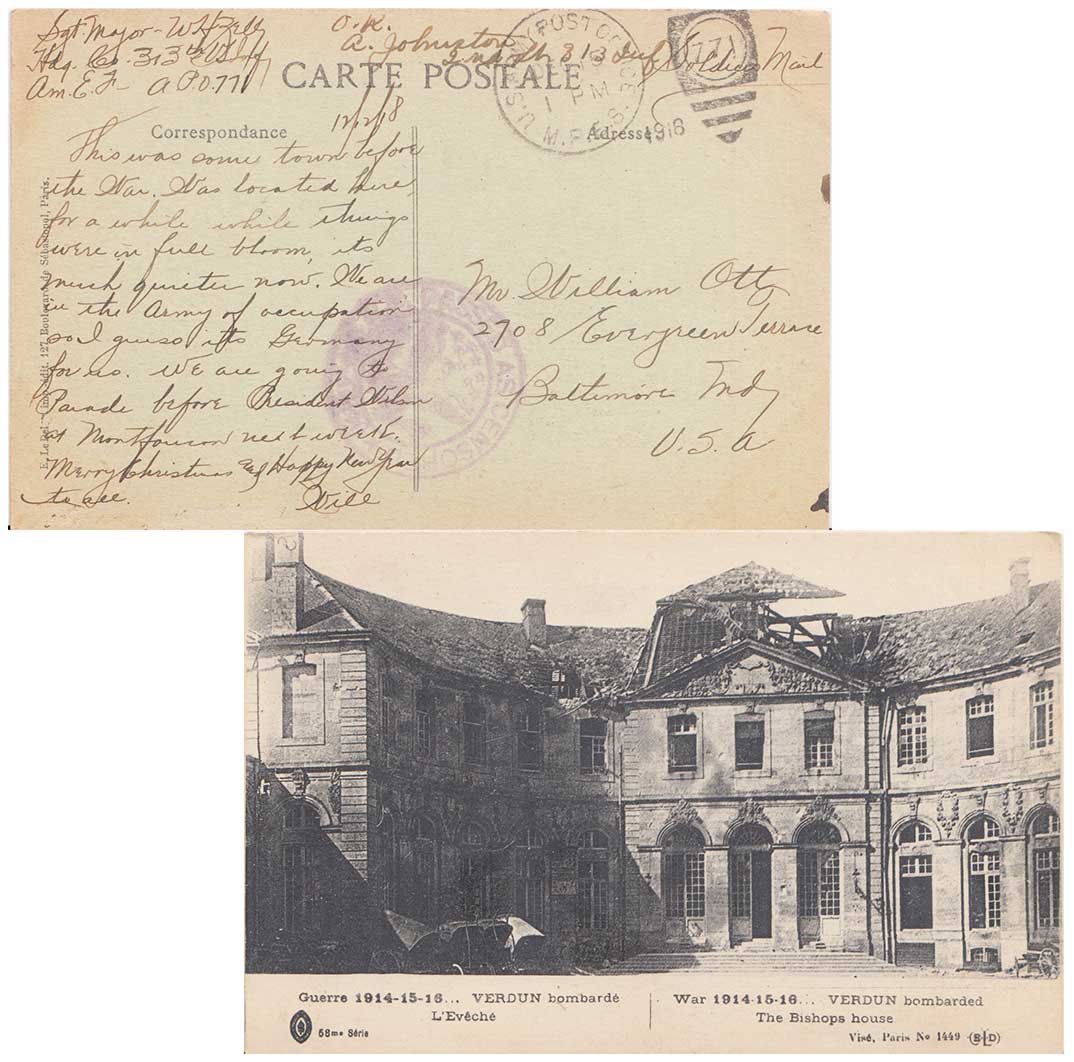 Sgt Major - W H
Hdq. Co. 313th
Am. E. F - A P. O. 771
O. K.
A. Johnston
2nd Lt 313 Inf
Soldiers Mail
CARTE POSTALE
POST OFFICE
1 PM
1918
771
Correspondance
Adresse
12/2/18
This was some town before
the War. Was located here
for a while while things
were in full bloom, its
much quieter now. We are
in the Army of occupation
so I guess its Germany
for us. We are going to
Parade before President Wilson
at Montfaucon next week.
Merry Christmas & Happy New Year
to all. Will
Mr. William Ott
2708 Evergreen Terrace
Baltimore Md
U. S. A
127, Boulevard de Sébastopol, Paris.
Guerre 1914-15-16... VERDUN bombardé
L'Evêché
58me Série
War 1914-15-16... VERDUN bombarded
The Bishops house
Visé, Paris No 1449